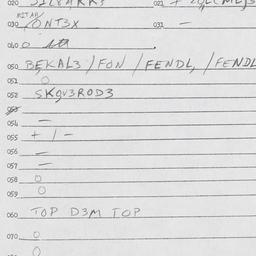 020 021
030 /ONT3X 031 —
040 O
050 BEKAL3/FON/FENDL,/FENDL
051 O
052 SKQV3ROD3
053
054 —
055 + / -
056 —
057 —
058 O
059 O
060 TOP D3M TOP
070 O
O